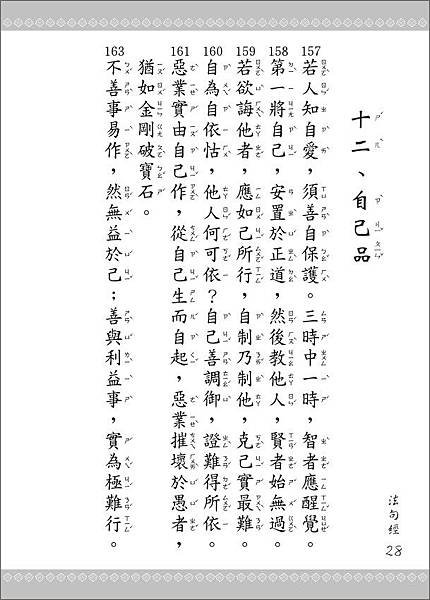 十二、自己品
157 若人知自愛，須善自保護。三時中一時，智者應醒覺。
158 第一將自己，安置於正道，然後教他人，賢者始無過。
159 若欲誨他者，應如己所行，自制乃制他，克己實最難。
160 自為自依怙，他人何可依？自己善調御，證難得所依。
161 惡業實由自己作，從自己生而自起，惡業摧壞於愚者，
猶如金剛破寶石。
163 不善事易作，然無益於己；善與利益事，實為極難行。
法句經
28